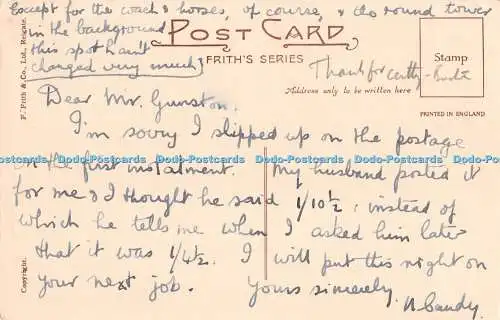 Except for the coach & horses, of course, & the round tower
in the background
this spot hasn't
changed very much
POST CARD
FRITH'S SERIES
Thanks for
Address only to be written here
Stamp
PRINTED IN ENGLAND
F. Frith & Co., Ltd., Reigate.
Copyright.
Dear Mr. Gunston.
I'm sorry I slipped up on the postage
Dodo-Postcards Dodo-Postcards Dodo-Postcards Dodo-Postcards Dodo-Postcards
on the first instalment. My husband posted it
for me & I thought he said 1/10½ : instead of
which he tells me when I asked him later
that it was 1/4½. I will put this right on
your next job. Yours sincerely.